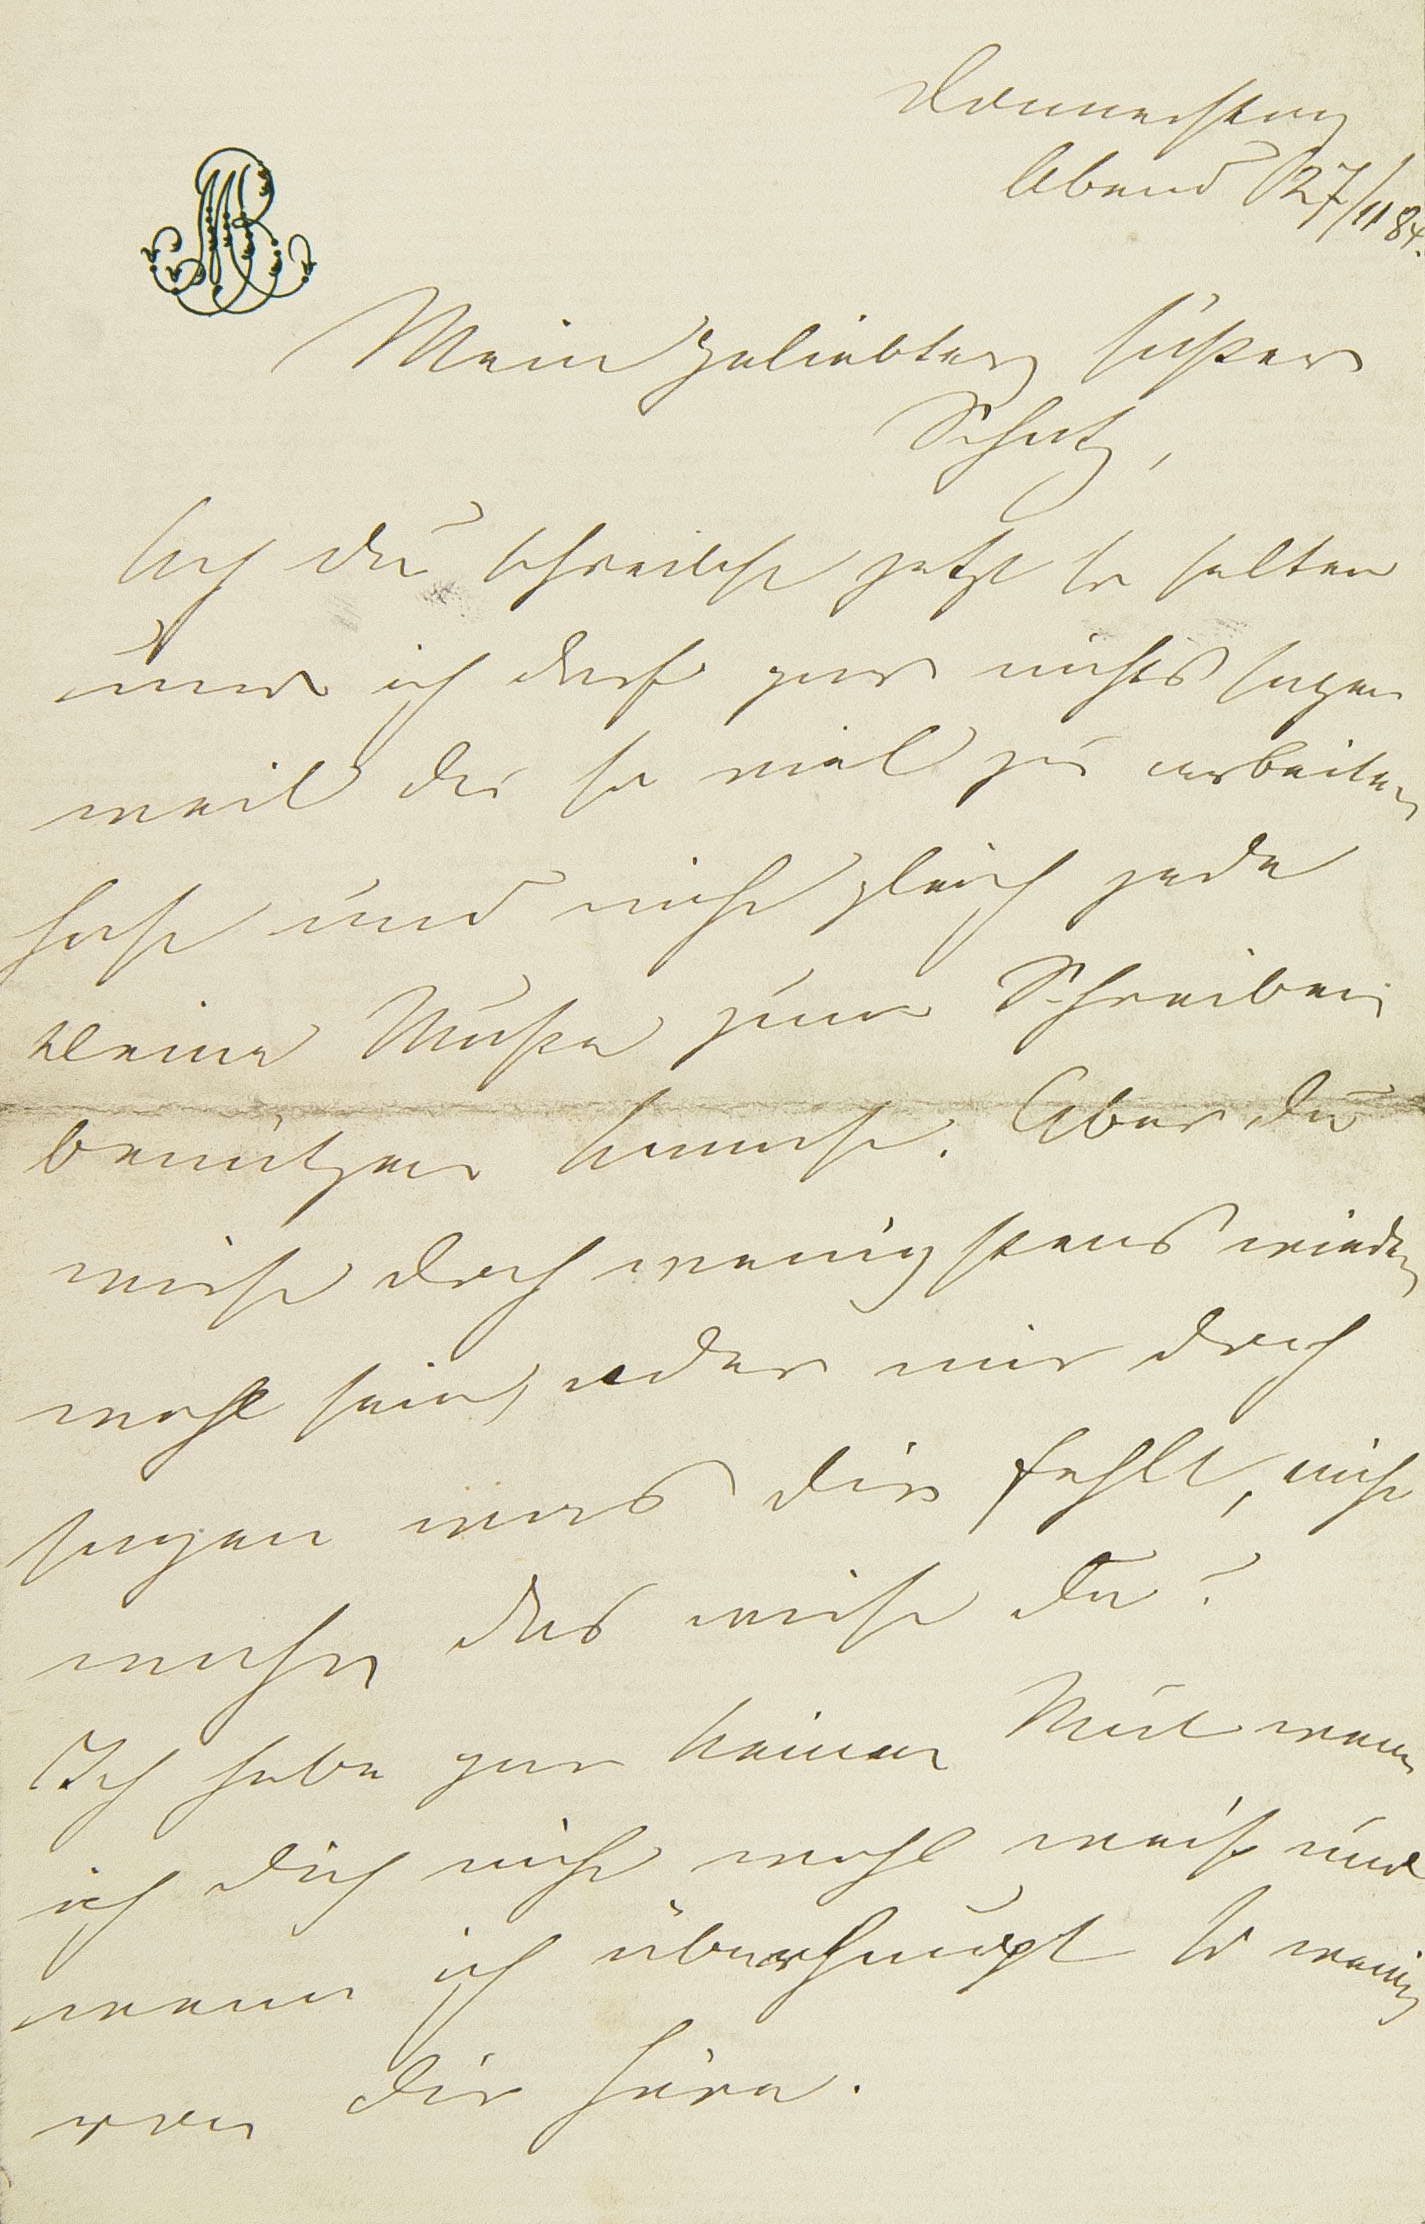 MB
Donnerstag
Abend 27/11 84.
Mein geliebter süßer
Schatz,
Ach du schreibst jetzt so selten
und ich darf gar nichts sagen
weil du so viel zu arbeiten
hast und nicht gleich jede
kleine Muße zum Schreiben
benützen kannst. Aber du
wirst doch wenigstens wieder
wohl sein, oder mir doch
sagen was dir fehlt, nicht
wahr das wirst du?
Ich habe gar keinen Mut wenn
ich dich nicht wohl weiß und
wenn ich überhaupt so wenig
von dir höre.